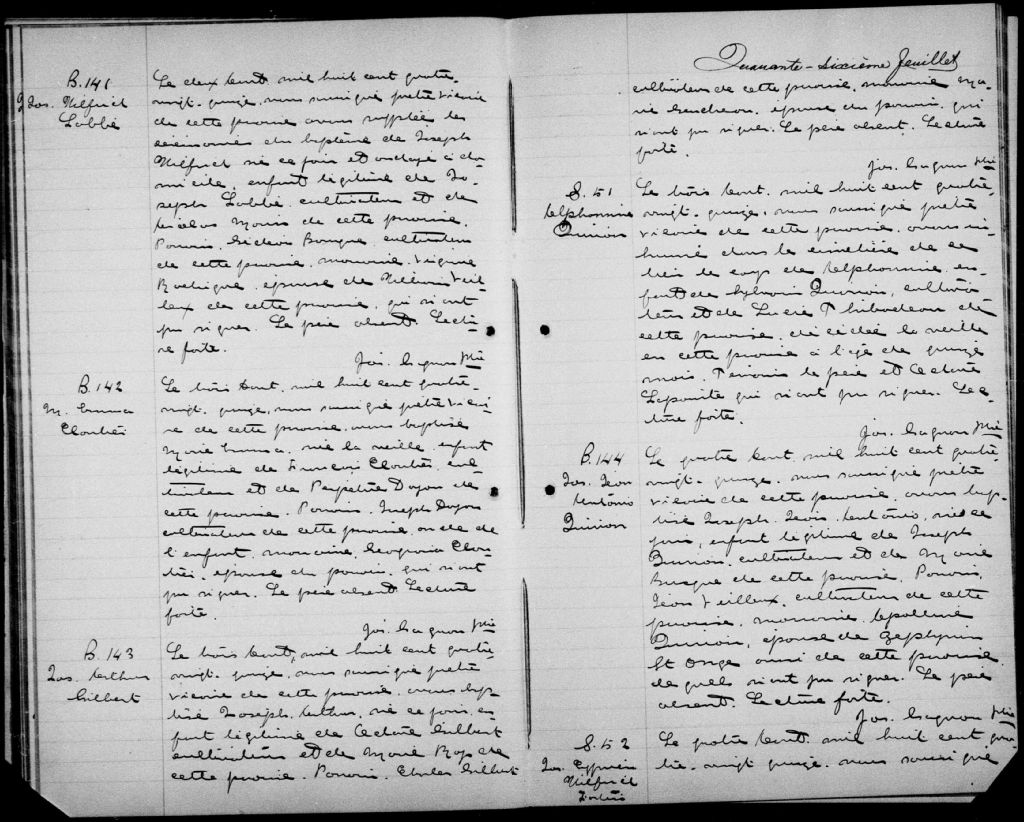 B. 141
Jos. Wilfrid
Labbé
Le deux Aout, mil huit cent quatre-
vingt-quinze, nous soussigné prêtre vicaire
de cette paroisse avons suppléé les
cérémonies du baptême de Joseph
Wilfrid né ce jour et ondoyé à do-
micile, enfant légitime de Jo-
seph Labbé, cultivateur et de
de cette paroisse.
Parrain, Gédéon Bougie, cultivateur
de cette paroisse, marraine, Virginie
Rodrigue, épouse de Veil-
leux de cette paroisse, qui n'ont
pu signer. Le père absent. Lectu-
re faite.
Jos. Gagnon Ptre
B. 142
M. Emma
Cloutier
Le trois Aout, mil huit cent quatre-
vingt-quinze, nous soussigné prêtre vicai-
re de cette paroisse, avons baptisé
Marie Emma, née la veille, enfant
légitime de François Cloutier, cul-
tivateur et de Perpétue Doyon de
cette paroisse. Parrain, Joseph Doyon
cultivateur de cette paroisse, oncle de
l'enfant, marraine, Georgiana Clou-
tier, épouse du parrain, qui n'ont
pu signer. Le père absent Lecture
faite.
Jos. Gagnon Ptre
B. 143
Jos. Arthur
Gilbert
Le trois Aout, mil huit cent quatre-
vingt-quinze, nous soussigné prêtre
vicaire de cette paroisse, avons bap-
tisé Joseph, Arthur, né ce jour, en-
fant légitime de Gilbert
cultivateur et de Marie Roy de
cette paroisse. Parrain, Charles Gilbert
Quarante-sixième feuillet
cultivateur de cette paroisse, marraine Ma-
rie épouse du parrain, qui
n'ont pu signer. Le père absent. Lecture
faite.
Jos. Gagnon Ptre
S. 51
Alphonsine
Quirion
Le trois Aout, mil huit cent quatre-
vingt-quinze, nous soussigné prêtre
vicaire de cette paroisse, avons in-
humé dans le cimetière de ce
lieu le corps de Alphonsine, en-
fant de Sylvain Quirion, cultiva-
teur et de Lucie Thibodeau de
cette paroisse, décédée la veille
en cette paroisse à l'âge de quinze
mois. Témoins le père et
Lapointe qui n'ont pu signer. Lec-
ture faite.
Jos. Gagnon Ptre
B. 144
Jos. Léon
Antonio
Quirion
Le quatre Aout, mil huit cent quatre-
vingt-quinze, nous soussigné prêtre
vicaire de cette paroisse, avons bap-
tisé Joseph, Léon, Antonio, né ce
jour, enfant légitime de Joseph
Quirion, cultivateur et de Marie
Busque de cette paroisse. Parrain,
Léon Veilleux, cultivateur de cette
paroisse, marraine, Apolline
Quirion, épouse de Zéphyrin
St Onge aussi de cette paroisse
lesquels n'ont pu signer. Le père
absent. Lecture faite.
Jos. Gagnon Ptre
S. 52
Jos. Cyprien
Wilfrid
Fortin
Le quatre Aout, mil huit cent qua-
tre-vingt-quinze, nous soussigné